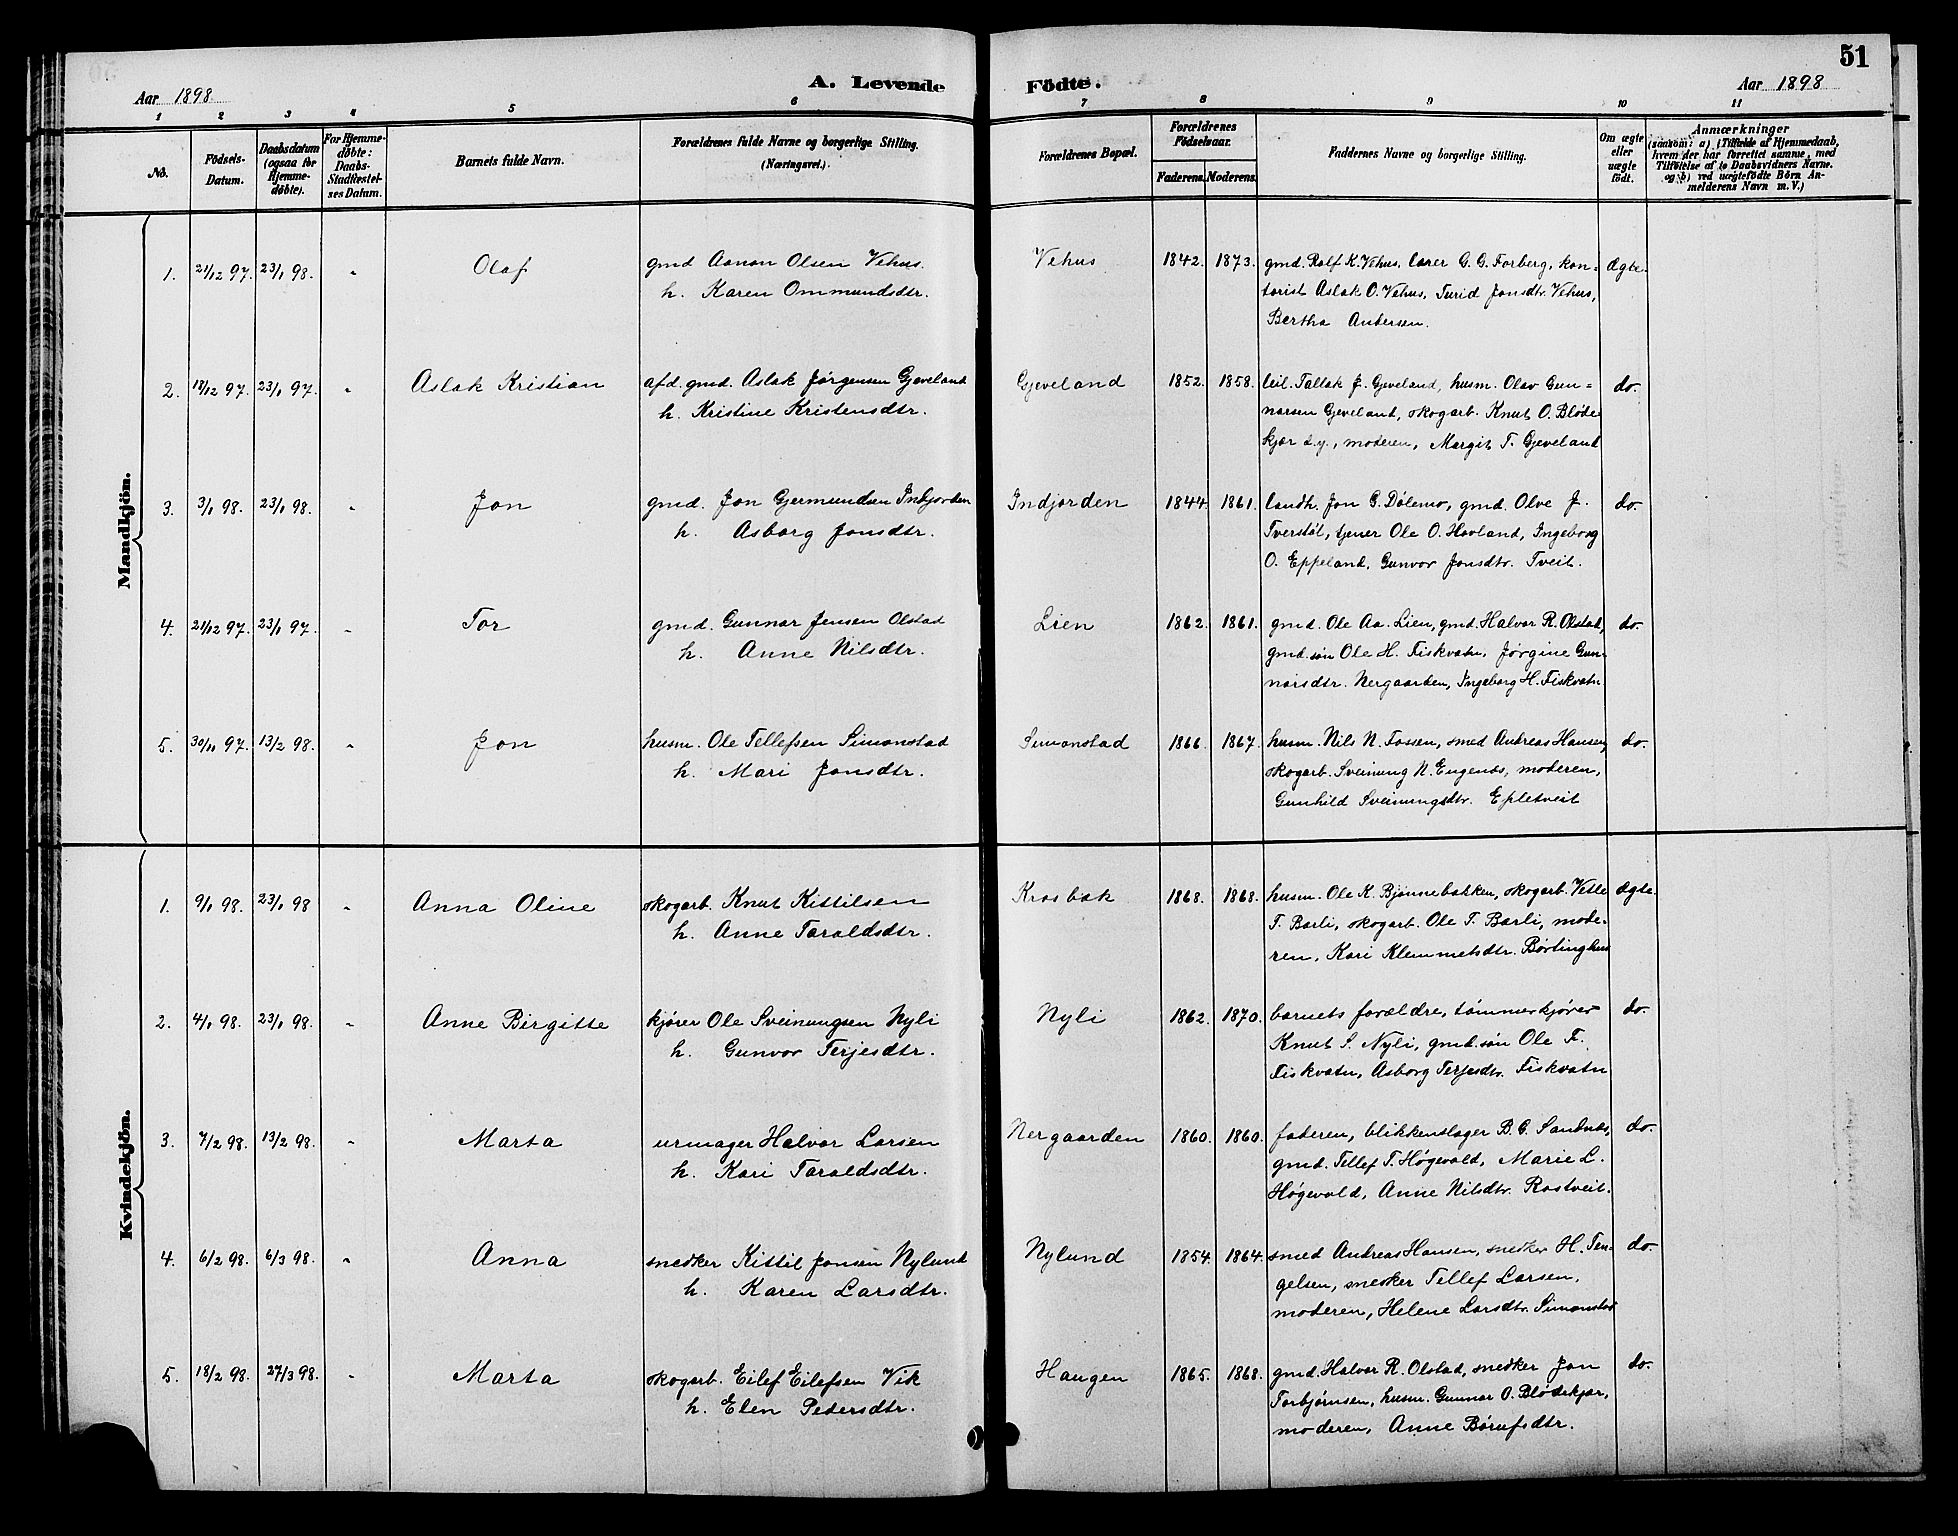 51
A. Levende Födte.
Aar 1898
Aar 1898
1 2 3 4 5 6 7 8 9 10 11
No.
Födsels-Datum.
Daabsdatum (ogsaa for Hjemmedøbte).
For Hjemmedøbte: Daabs Stadfæstelses Datum.
Barnets fulde Navn.
Forældrenes fulde Navne og borgerlige Stilling.
(Næringsvei.)
Forældrenes Bopæl.
Forældrenes Födselsaar.
Faderens. Moderens.
Faddernes Navne og borgerlige Stilling.
Om ægte eller uægte født.
Anmærkninger
(saasom: a) i Tilfælde af Hjemmedaab,
hvem der har forrettet samme, med
Tilføielse af to Daabsvidners Navne.
og b) ved uægtefödte Börn An-
melderens Navn m. V.)
Mandkjön.
1. 21/12 97. 23/1 98. " Olaf gmd Aanon Olsen Vehus. Vehus 1842. 1873. gmd. Rolf K. Vehus, lærer G. G. Forberg, kon= ægte.
h. Karen Ommundsdtr. torist Aslak O. Vehus, Turid Jonsdtr. Vehus,
Bertha Andersen.
2. 18/12 97. 23/1 97. " Aslak Kristian afd. gmd. Aslak Jørgensen Gjeveland Gjeveland 1852. 1858. leil. Tallak J. Gjeveland, husm. Olav Gun= do.
h. Kristine Kristensdtr. narsen Gjeveland, skogarb. Knut O. Bløde
kjær d.y., moderen, Margit T. Gjeveland
3. 3/1 98. 23/1 98. " Jon gmd. Jon Gjermundsen Indjorden Indjorden 1844. 1861. landh. Jon G. Dølemo, gmd. Olve J. do.
h. Asborg Jonsdtr. Tverstøl, tjener Ole O. Hovland, Ingeborg
O. Eppeland, Gunvor Jonsdtr. Tveit.
4. 21/12 97. 23/1 97. " Tor gmd. Gunnar Jensen Olstad Lien 1862. 1861. gmd. Ole Aa. Lien, gmd. Halvor R. Olstad, do.
h. Anne Nilsdtr. gmd. søn Ole H. Fiskvatn, Jørgine Gun-
narsdtr. Nergaarden, Ingeborg H. Fiskvatn
5. 30/11 97. 13/2 98. " Jon husm. Ole Tellefsen Simonstad Simonstad 1866. 1867. husm. Nils N. Fossen, smed Andreas Hansen, do.
h. Mari Jonsdtr. skogarb. Sveinung N. Engenes, moderen,
Gunhild Sveinungsdtr. Epletveit
Kvindekjön.
1. 9/1 98. 23/1 98 " Anna Oline skogarb. Knut Kittilsen Krosbæk 1868. 1868. husm. Ole K. Bjønnebakken, skogarb. Vetle ægte.
h. Anne Taraldsdtr. T. Barli, skogarb. Ole T. Barli, mode-
ren, Kari Klemmetsdtr. Børtinghus
2. 4/1 98. 23/1 98. " Anne Birgitte kjører Ole Sveinungsen Nyli Nyli 1862. 1870. barnets forældre, tømmerkjører do.
h. Gunvor Terjesdtr. Knut S. Nyli, gmd. søn Ole T.
Fiskvatn, Asborg Terjesdtr. Fiskvatn
3. 7/2 98. 13/2 98. " Marta urmager Halvor Larsen Nergaarden 1860. 1860. faderen, blikkenslager B. G. Sandnes, do.
h. Kari Taraldsdtr. gmd. Tellef T. Høgevold, Marie L.
Høgevold, Anne Nilsdtr. Rostveit.
4. 6/2 98. 6/3 98. " Anna snedker Kittil Jonsen Nylund Nylund 1854. 1864. smed Andreas Hansen, snedker H. Ten- do.
h. Karen Larsdtr. gelsen, snedker Tellef Larsen,
moderen, Helene Larsdtr. Simonstad
5. 18/2 98. 27/3 98. " Marta skogarb. Eilef Eilefsen Vik Haugen 1865. 1868. gmd. Halvor R. Olstad, snedker Jon do.
h. Elen Pedersdtr. Torbjørnsen, husm. Gunnar O. Blødekjær,
moderen, Anne Børufsdtr.